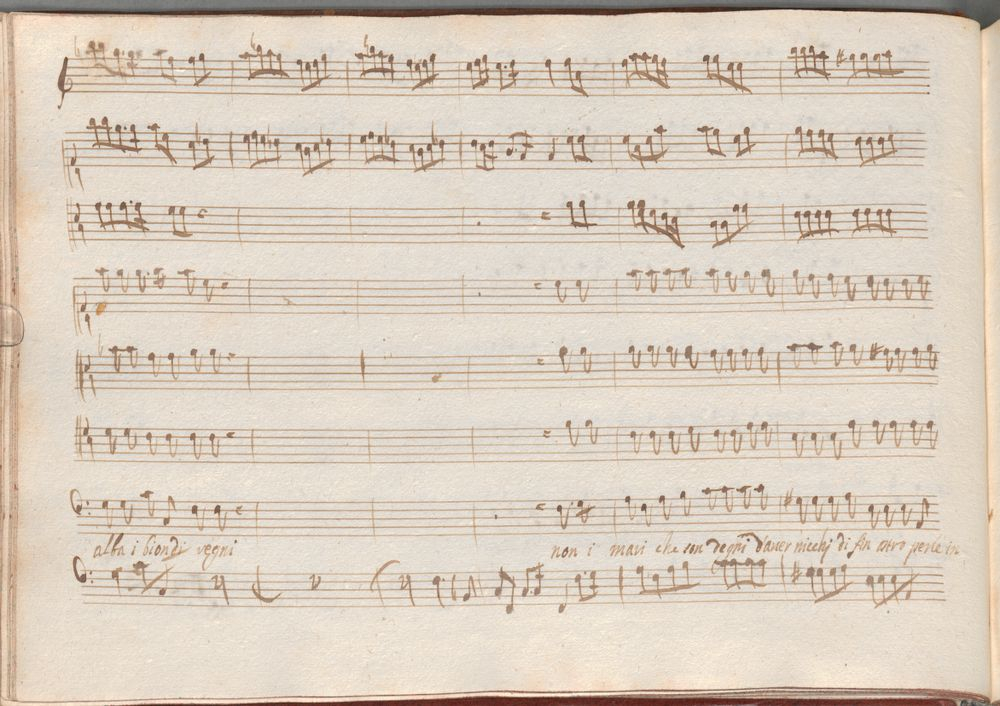 alba i biondi vegni non i mari che son degni d'aver nicchj di fin ostro perle in